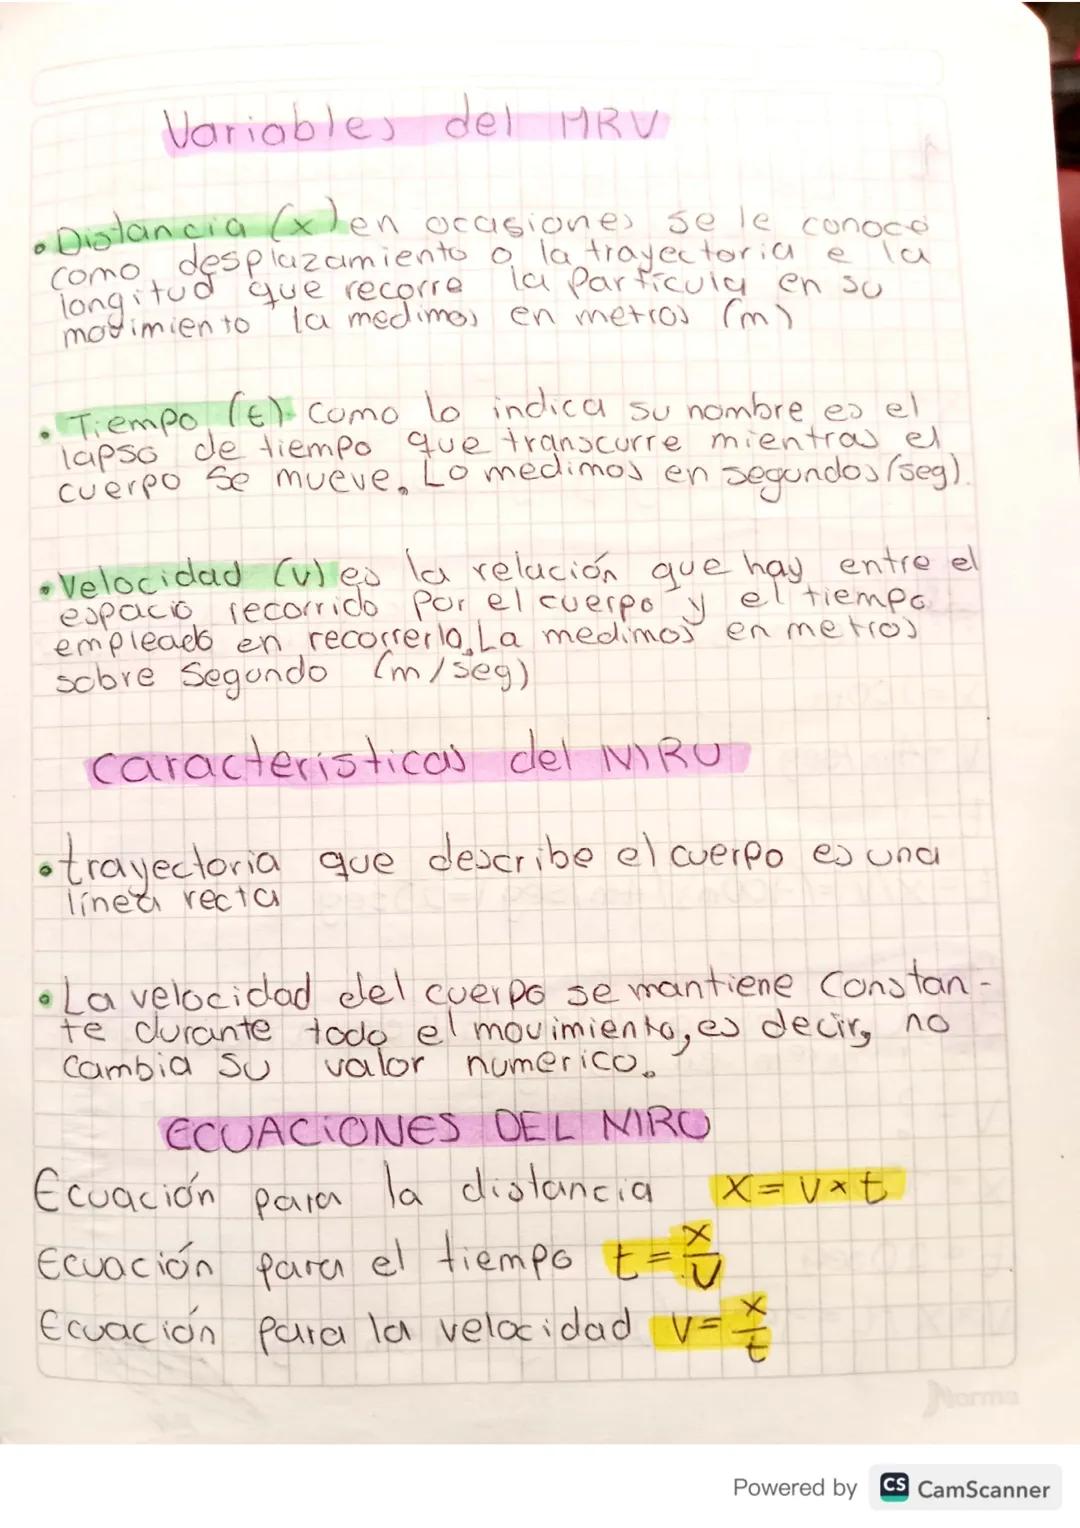 Variables del MRU
• Distancia (x) en ocasiones se le conoce
como desplazamiento o la trayectoria e la
longitud que recorre la Partícula en su
movimiento la medimos en metros (m)
• Tiempo (t) como lo indica su nombre es el
lapso de tiempo que transcurre mientras el
cuerpo se mueve. Lo medimos en segundos (seg).
• Velocidad (v) es la relación que hay entre el
espacio recorrido por el cuerpo y el tiempo
empleado en recorrerlo. La medimos en metros
sobre Segundo (m/seg)
caracteristicas del MRU
• trayectoria que describe el cuerpo es una
línea recta
• La velocidad del cuerpo se mantiene Constan-
te durante todo el movimiento, es decir, no
Cambia su valor numerico.
ECUACIONES DEL MRU
Ecuación para la distancia x = v × t
Ecuación para el tiempo t = x/v
Ecuación para la velocidad v = x/t
Norma
Powered by CS CamScanner